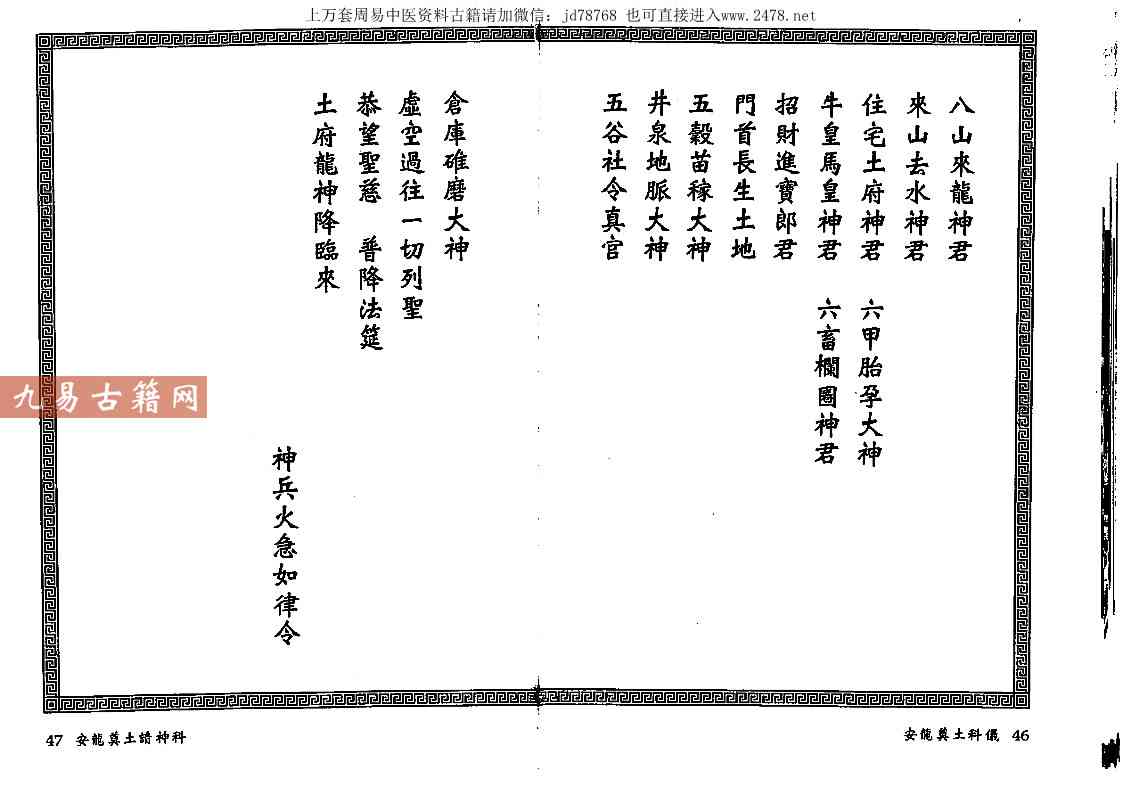 上万套周易中医资料古籍请加微信：jd78768 也可直接进入www.2478.net
八山來龍神君
來山去水神君
住宅土府神君　六甲胎孕大神
牛皇馬皇神君　六畜欄圈神君
招財進寶郎君
門首長生土地
五穀苗稼大神
井泉地脈大神
五谷社令真官
倉庫碓磨大神
虛空過往一切列聖
恭望聖慈　普降法筵
土府龍神降臨來
神兵火急如律令
九易古籍网
安龍奠土科儀 46
47 安龍奠土請神科